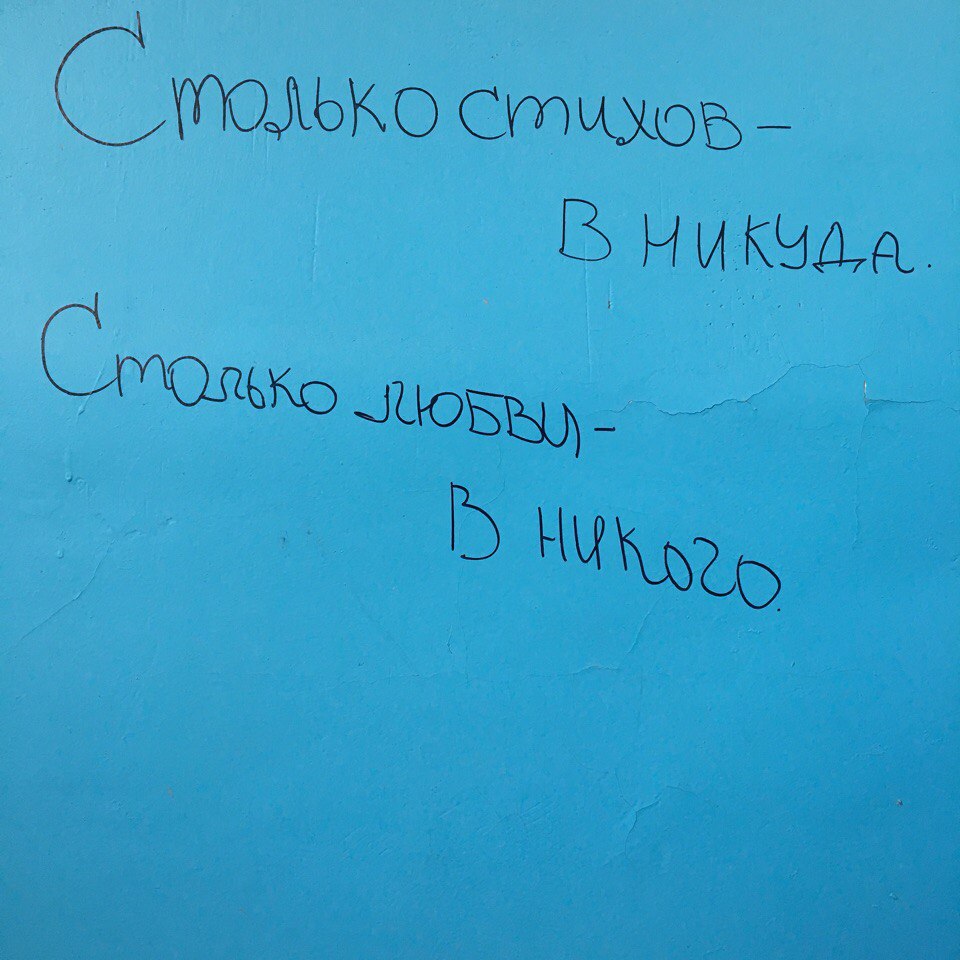 Столько стихов –
В никуда.
Столько любви –
В никого.